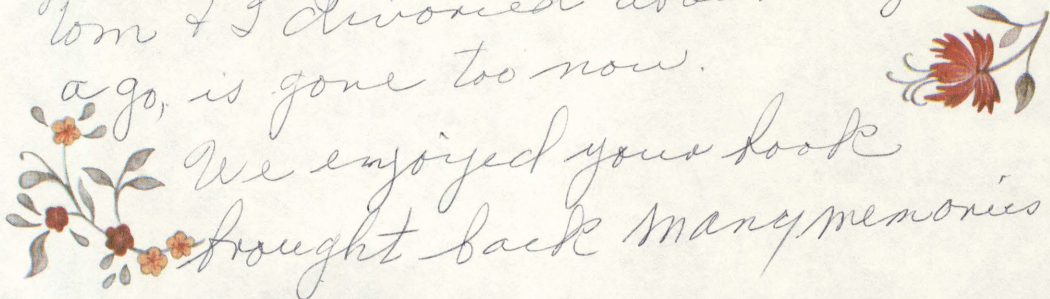 Tom & I divorced
ago, is gone too now.
We enjoyed your book
brought back many memories